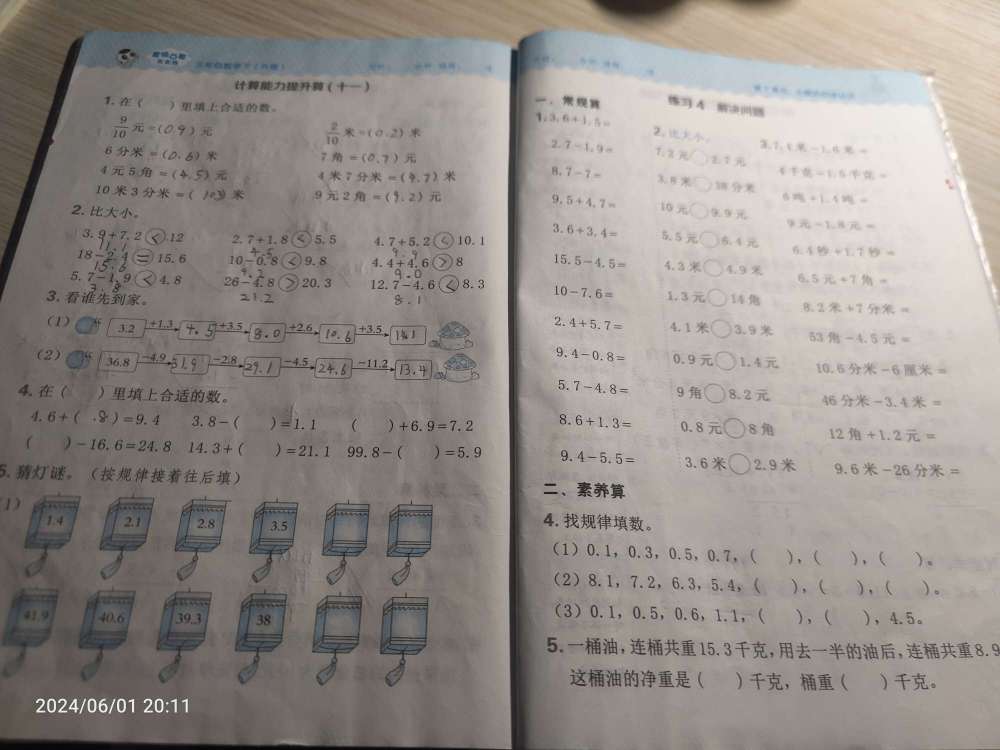 计算能力提升算(十一)
1.在( )里填上合适的数。
9/10元=(0.9)元 2/10米=(0.2)米
6分米=(0.6)米 7角=(0.7)元
4元5角=(4.5)元 4米7分米=(4.7)米
10米3分米=( )米 9元2角=(9.2)元
2.比大小。
3.9+7.2<12 2.7+1.8<5.5 4.7+5.2<10.1
11.1 4.5 9.9
18-2.4=15.6 10-0.8<9.8 4.4+4.6>8
15.6 9.2 9.0
5.7-1.9<4.8 26-4.8>20.3 12.7-4.6<8.3
3.8 21.2 8.1
3.看谁先到家。
(1) 3.2 +1.3 4.5 +3.5 8.0 +2.6 10.6 +3.5 14.1
(2) 36.8 -4.9 31.9 -2.8 29.1 -4.5 24.6 -11.2 13.4
4.在( )里填上合适的数。
4.6+( .8)=9.4 3.8-( )=1.1 ( )+6.9=7.2
( )-16.6=24.8 14.3+( )=21.1 99.8-( )=5.9
5.猜灯谜。(按规律接着往后填)
(1)
1.4 2.1 2.8 3.5
41.9 40.6 39.3 38
2024/06/01 20:11
练习4 解决问题
一、常规算
1.3.6+1.5=
2.7-1.9=
8.7-7=
9.5+4.7=
3.6+3.4=
15.5-4.5=
10-7.6=
2.4+5.7=
9.4-0.8=
5.7-4.8=
8.6+1.3=
9.4-5.5=
2.比大小。
7.2元○2.7元
3.8米○38分米
10元○9.9元
5.5元○6.4元
4.3米○4.9米
1.3元○14角
4.1米○3.9米
0.9元○1.4元
9角○8.2元
0.8元○8角
3.6米○2.9米
3.7.4米-1.6米=
4千克-1.5千克=
6吨+1.4吨=
9元-1.8元=
6.4秒+1.7秒=
6.5元+7角=
8.2米+7分米=
53角-4.5元=
10.6分米-6厘米=
46分米-3.4米=
12角+1.2元=
9.6米-26分米=
二、素养算
4.找规律填数。
(1)0.1,0.3,0.5,0.7,( ),( ),( )。
(2)8.1,7.2,6.3,5.4,( ),( ),( )。
(3)0.1,0.5,0.6,1.1,( ),( ),4.5。
5.一桶油,连桶共重15.3千克,用去一半的油后,连桶共重8.9
这桶油的净重是( )千克,桶重( )千克。